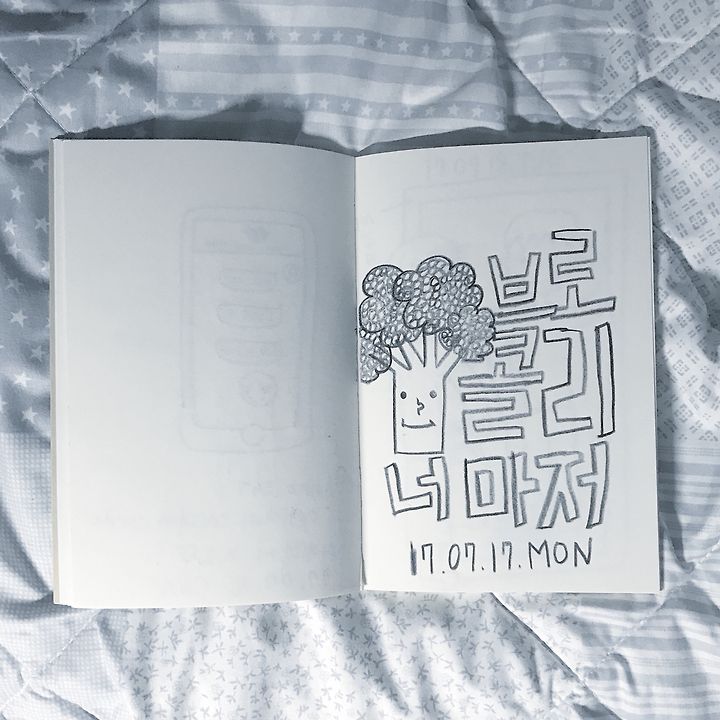 브로
콜리
너마저
17.07.17.MON